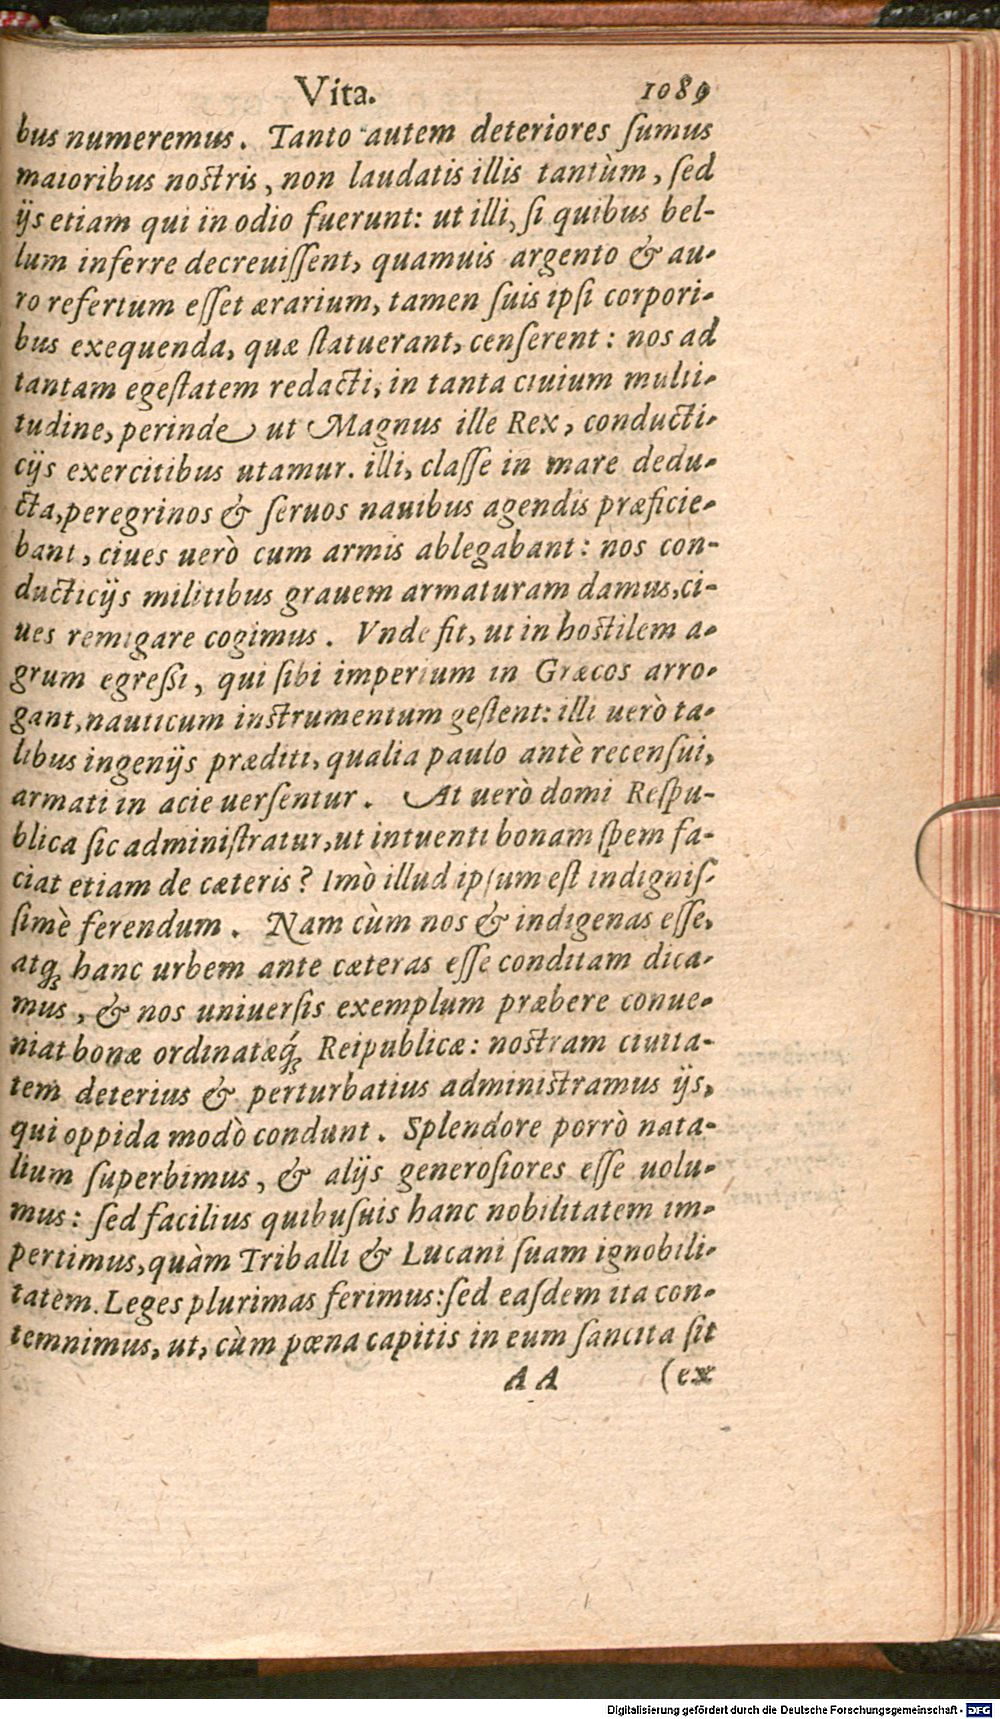 Vita. 1089
bus numeremus. Tanto autem deteriores ſumus
maioribus noſtris, non laudatis illis tantùm, ſed
ijs etiam qui in odio fuerunt: ut illi, ſi quibus bel-
lum inferre decreuiſſent, quamuis argento & au-
ro refertum eſſet ærarium, tamen ſuis ipſi corpori-
bus exequenda, quæ ſtatuerant, cenſerent: nos ad
tantam egeſtatem redacti, in tanta ciuium multi-
tudine, perinde ut Magnus ille Rex, conducti-
cijs exercitibus utamur. illi, claſſe in mare dedu-
cta, peregrinos & ſeruos nauibus agendis præficie-
bant, ciues uerò cum armis ablegabant: nos con-
ducticijs militibus grauem armaturam damus, ci-
ues remigare cogimus. Vnde fit, ut in hoſtilem a-
grum egreßi, qui ſibi imperium in Græcos arro-
gant, nauticum inſtrumentum geſtent: illi uerò ta-
libus ingenijs præditi, qualia paulo antè recenſui,
armati in acie uerſentur. At uerò domi Reſpu-
blica ſic adminiſtratur, ut intuenti bonam ſpem fa-
ciat etiam de cæteris? Imò illud ipſum eſt indigniſ-
ſimè ferendum. Nam cùm nos & indigenas eſſe,
atq; hanc urbem ante cæteras eſſe conditam dica-
mus, & nos uniuerſis exemplum præbere conue-
niat bonæ ordinatæq́; Reipublicæ: noſtram ciuita-
tem deterius & perturbatius adminiſtramus ijs,
qui oppida modò condunt. Splendore porrò nata-
lium ſuperbimus, & alijs generoſiores eſſe uolu-
mus: ſed facilius quibuſuis hanc nobilitatem im-
pertimus, quàm Triballi & Lucani ſuam ignobili-
tatem. Leges plurimas ferimus: ſed eaſdem ita con-
temnimus, ut, cùm pœna capitis in eum ſancita ſit
AA (ex
Digitalisierung gefördert durch die Deutsche Forschungsgemeinschaft - DFG